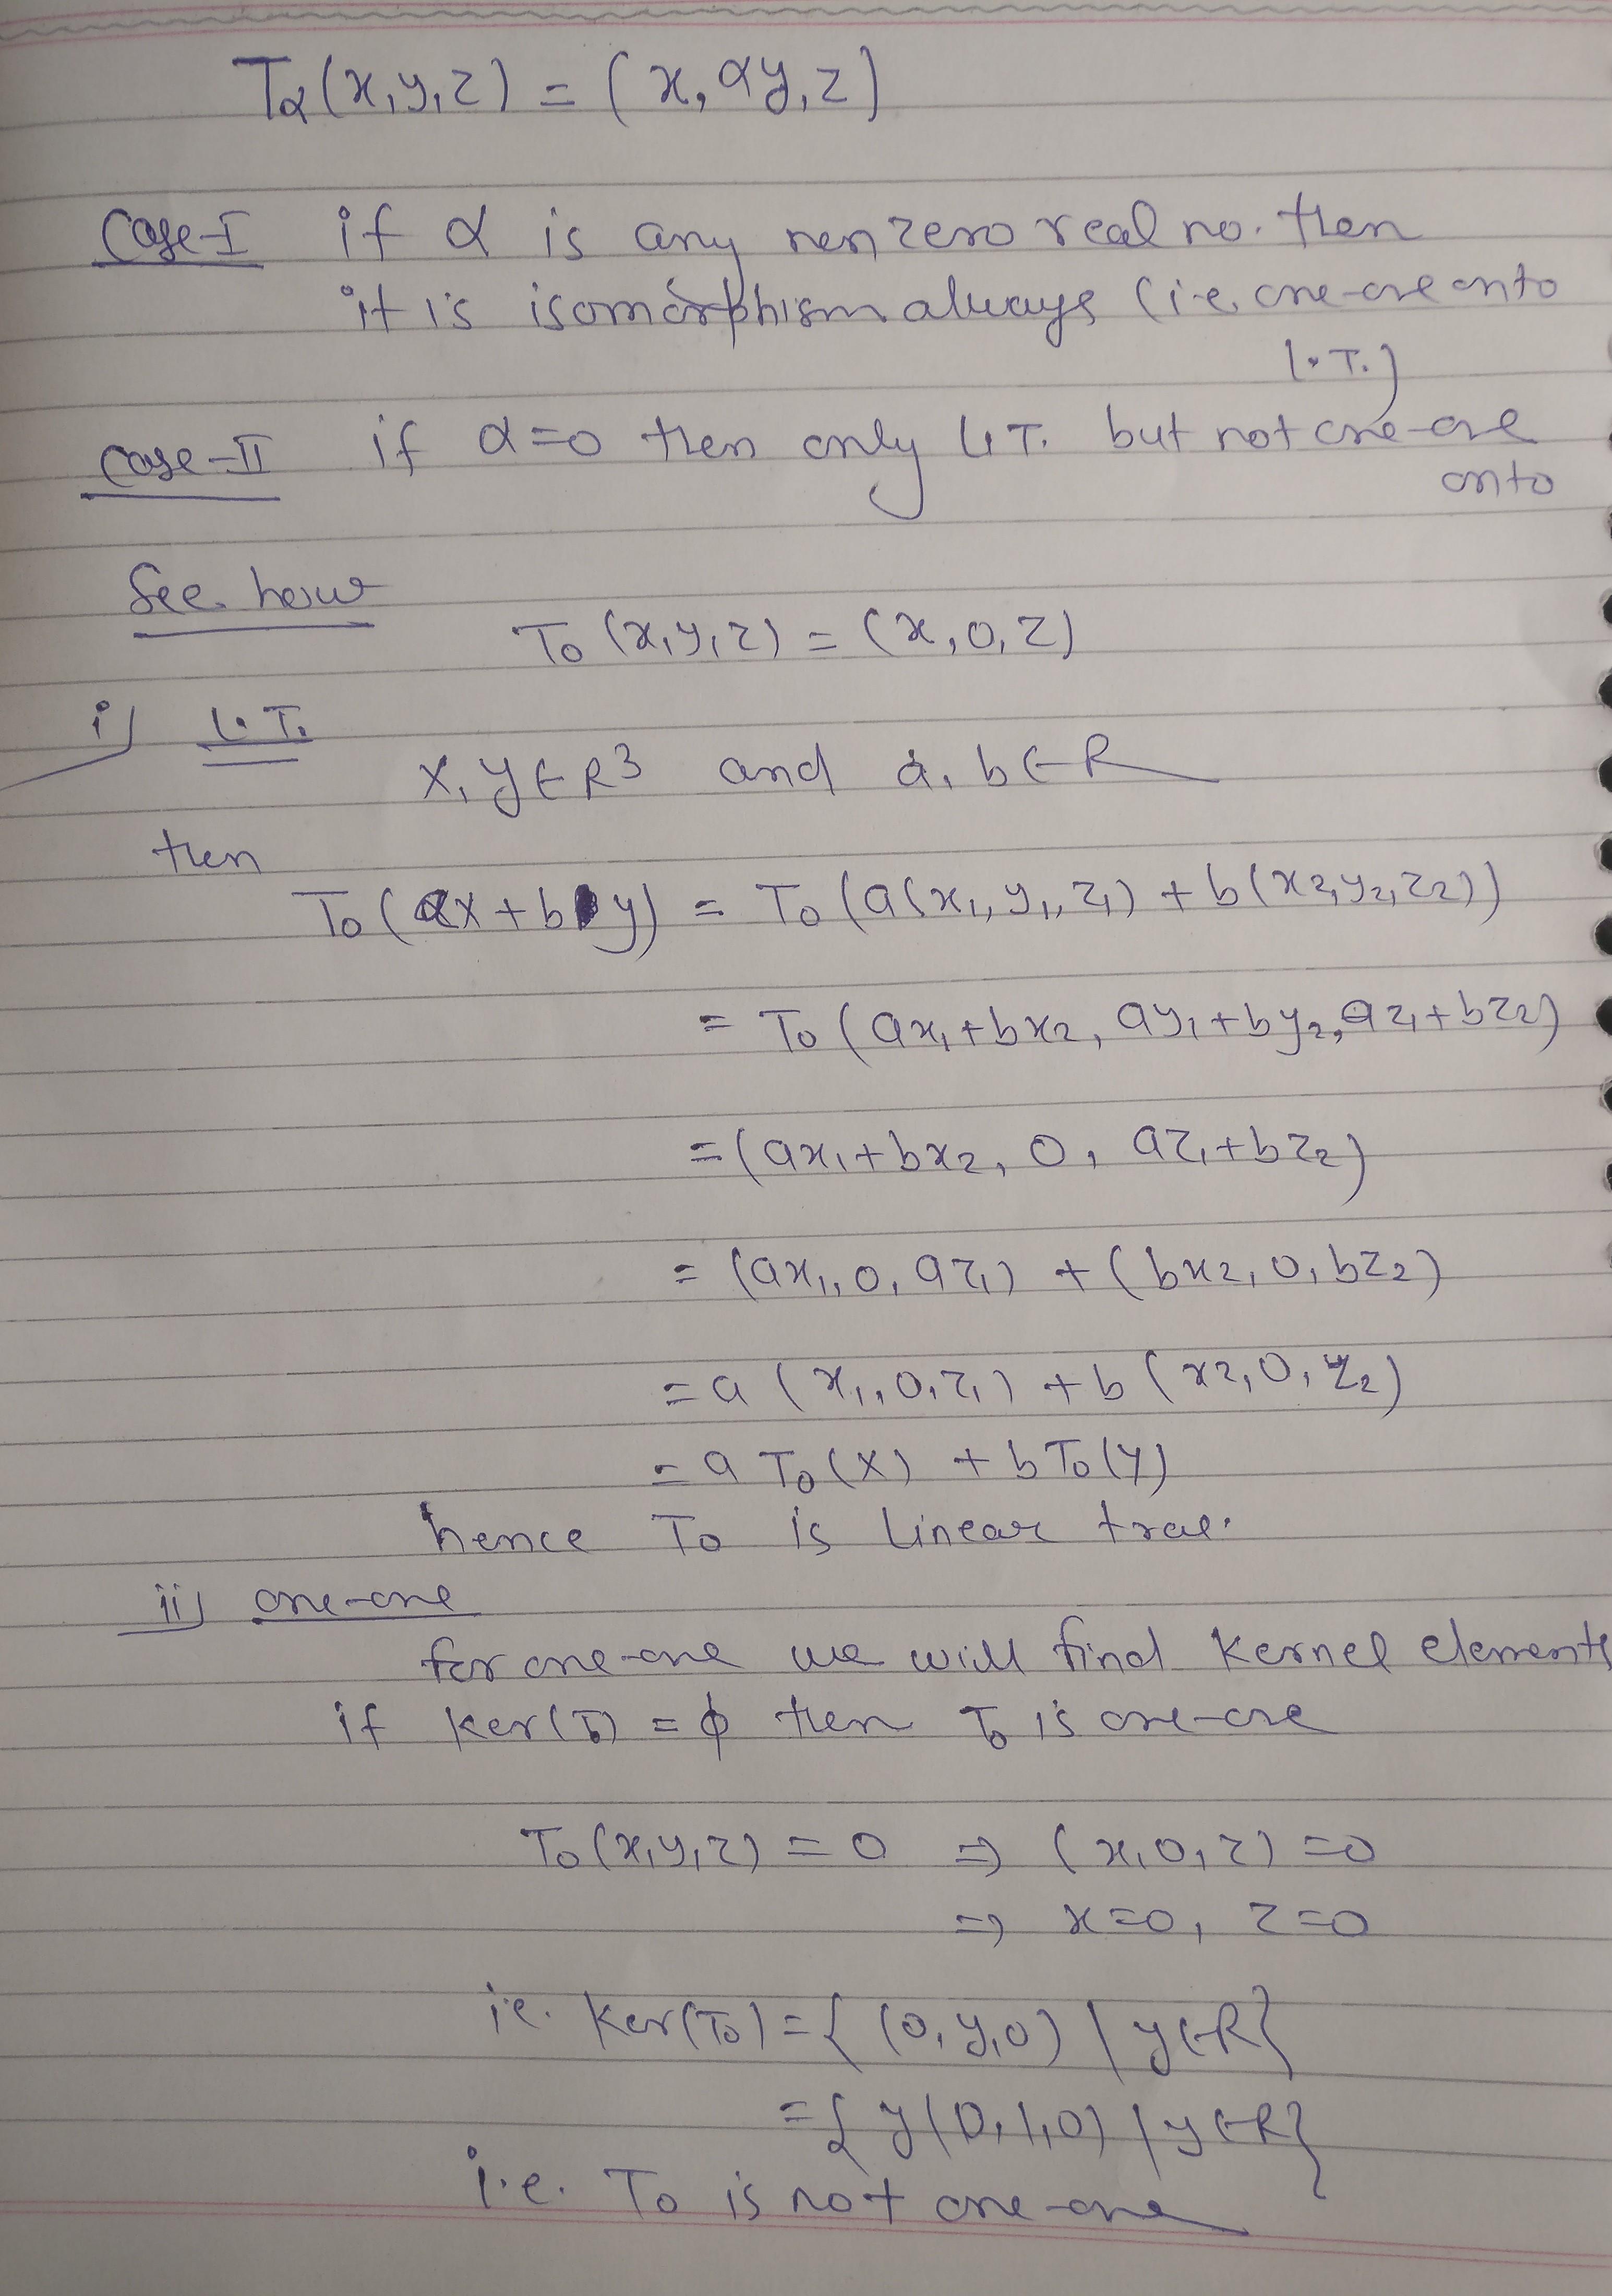 Tα(x,y,z) = (x, αy, z)
Case-I if α is any nonzero real no. then
it is isomorphism always (i.e. one-one onto
L.T.)
Case-II if α=0 then only L.T. but not one-one
onto
See how
T0(x,y,z) = (x,0,z)
i) L.T.
X, Y ∈ R³ and a, b ∈ R
then
T0(aX+bY) = T0(a(x1,y1,z1) + b(x2,y2,z2))
= T0(ax1+bx2, ay1+by2, az1+bz2)
= (ax1+bx2, 0, az1+bz2)
= (ax1,0,az1) + (bx2,0,bz2)
= a(x1,0,z1) + b(x2,0,z2)
= a T0(X) + b T0(Y)
hence T0 is linear
ii) one-one
for one-one we will find Kernel elements
if Ker(T0) = ϕ then T0 is one-one
T0(x,y,z) = 0 ⇒ (x,0,z) = 0
⇒ x=0, z=0
i.e. Ker(T0) = { (0,y,0) | y∈R}
= { y(0,1,0) | y∈R}
i.e. T0 is not one-one